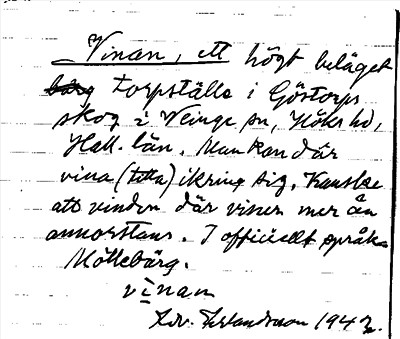 Vinan, ett högt beläget
bärg torpställe i Göstorps
skog i Weinge sn, Höks hd,
Hall. län. Man kan där
vina (titta) ikring sig. Kanske
att vinden där viner mer än
annorstans. I officiellt språk
Möllebärg.
vinan
1942.